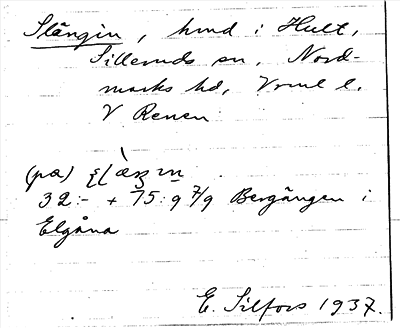 Slängin, hmd i Hult,
Silleruds sn, Nord-
marks hd, Vrml l.
V Renen
(på)
32:- + 75:9 7/9 Bergängen i
Elgåna
E. Silfors 1937.